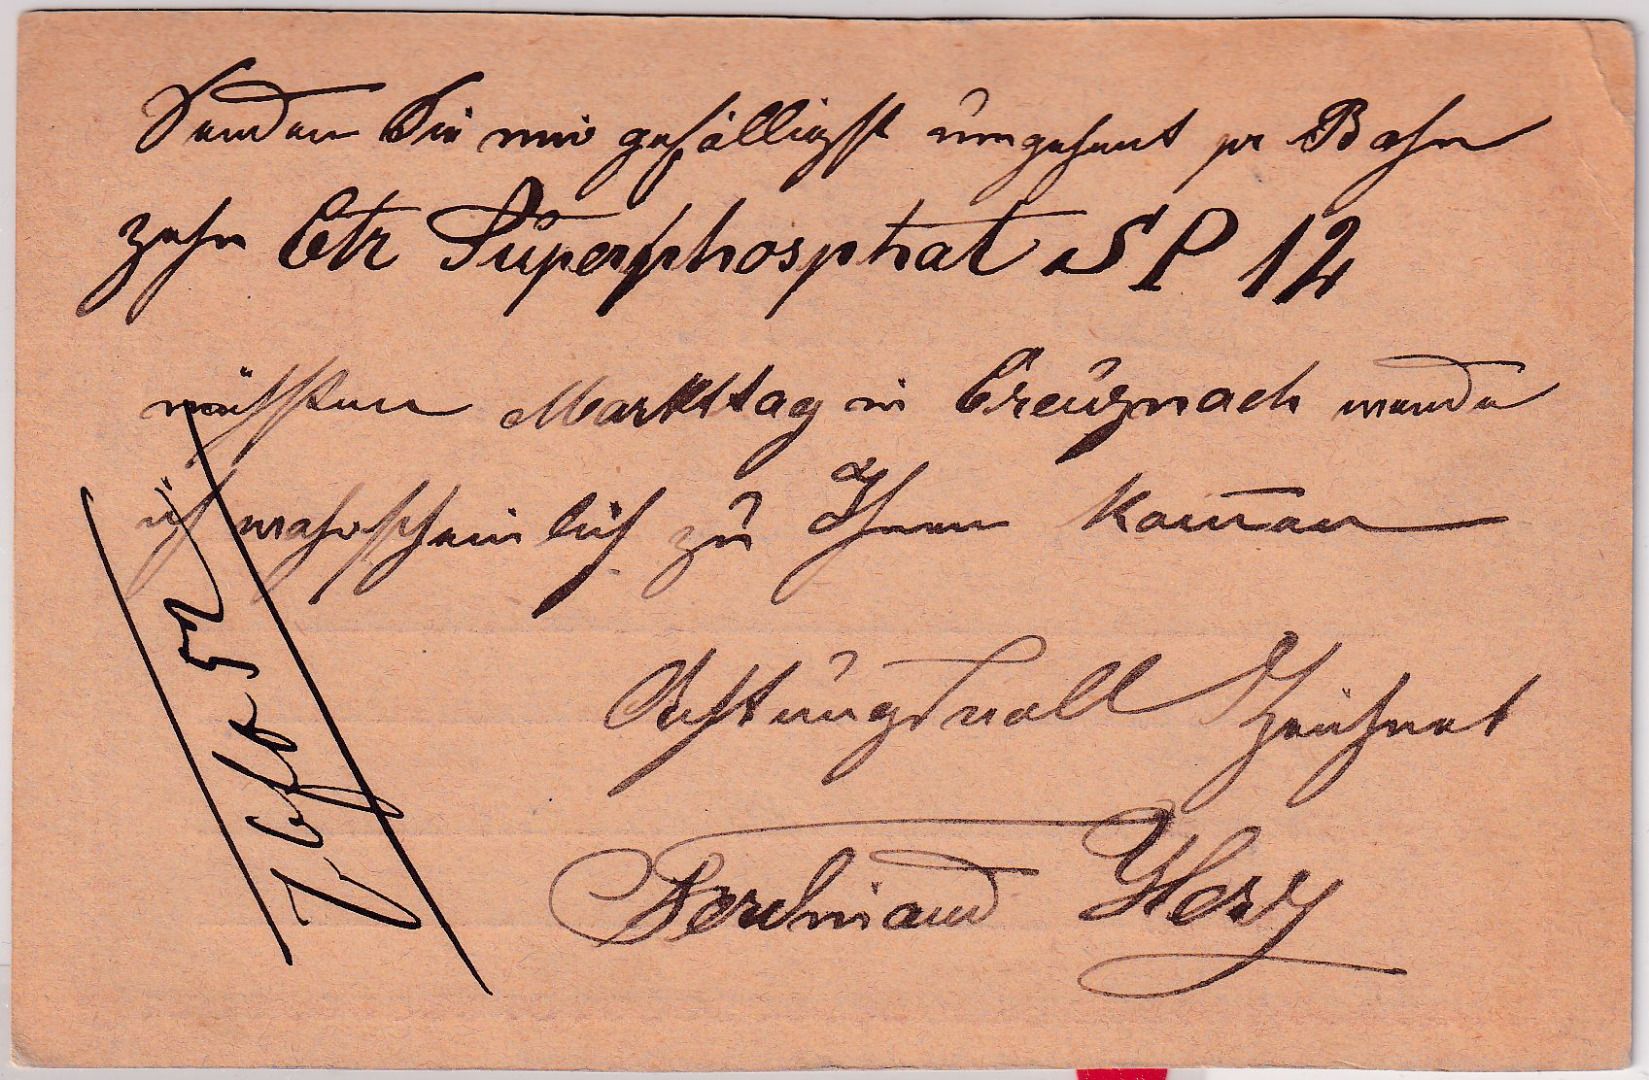 Senden Sie mir gefälligst umgehent pr Bahn
zehn Ctr Superphosphat SP 12
nächsten Markttag in Creuznach werde
ich wahrscheinlich zu Ihnen kom̅en
Achtungsvoll Zeichnet
Ferdinand Herz